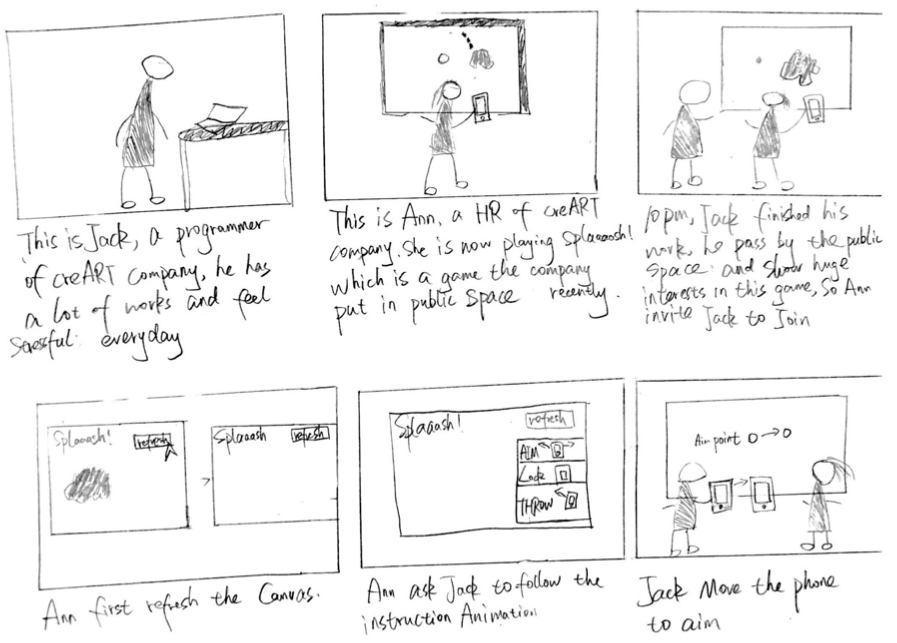 This is Jack, a programmer
of creART Company, he has
a lot of works and feel
stressful everyday
This is Ann, a HR of creART
company. She is now playing Splaaaash!
which is a game the company
put in public space recently.
10 pm, Jack finished his
work, he pass by the public
space and show huge
interests in this game, So Ann
invite Jack to Join
Splaaash!
refresh
Splaaash
refresh
Ann first refresh the Canvas.
Splaaash!
refresh
AIM
Lock
THROW
Ann ask Jack to follow the
instruction Animation
Aim point
Jack Move the phone
to aim